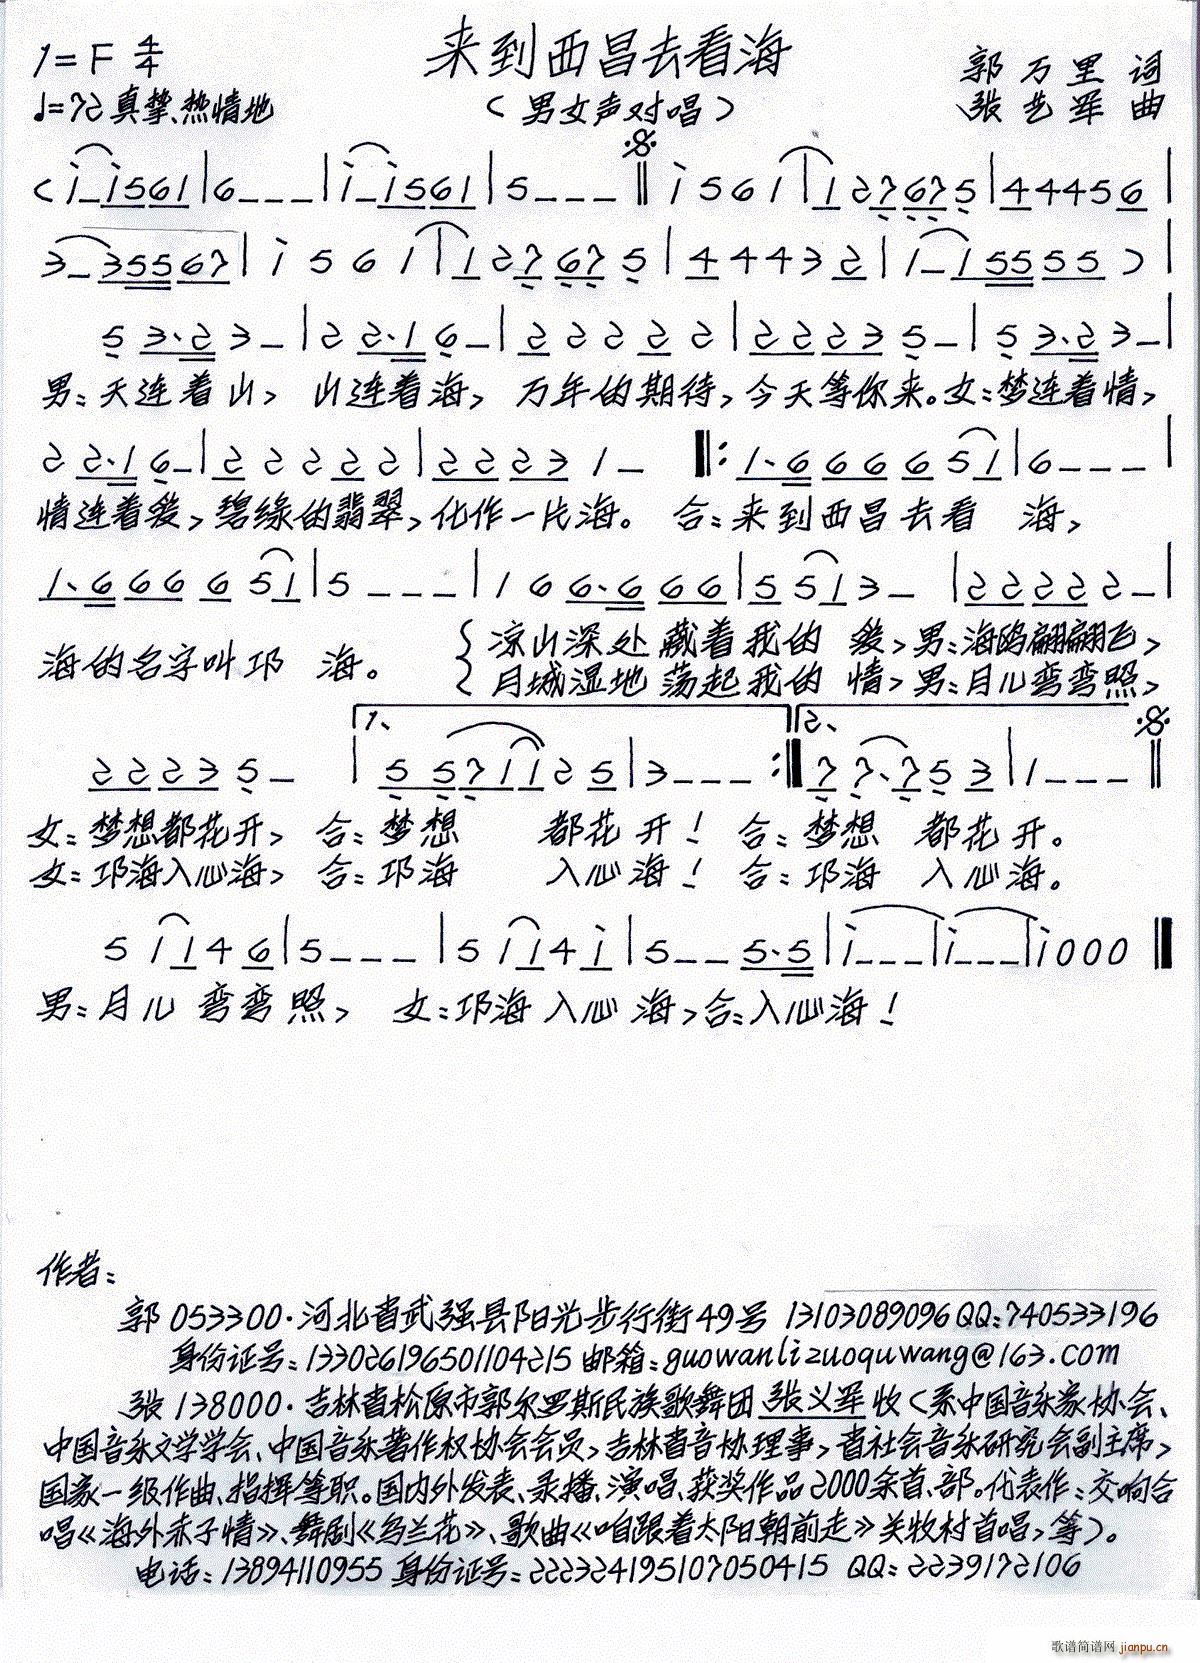 来到西昌去看海
1=F 4/4
郭万里 词
♩=72 真挚、热情地
(男女声对唱)
张艺军 曲
(i-i561|6---|i-i561|5---‖i561|127675|44456|
3-35567|i561|127675|44432|1-15555)|
53·23-|22·16-|22222|22235-|53·23-|
男:天连着山, 山连着海, 万年的期待,今天等你来。女:梦连着情,
22·16-|22222|22231-‖:1·666651|6---|
情连着爱,碧缘的翡翠,化作一片海。 合:来到西昌去看 海,
1·666651|5---|166·666|5513-|22222-|
海的名字叫邛 海。
凉山深处藏着我的 爱,男:海鸥翩翩飞,
月城湿地荡起我的 情,男:月儿弯弯照,
1、 2、
22235-|5571125|3---:‖77·753|1---‖
女:梦想都花开, 合:梦想 都花开! 合:梦想 都花开。
女:邛海入心海, 合:邛海 入心海! 合:邛海 入心海。
51146|5---|5114i|5--5·5|i---|i---|i000‖
男:月儿弯弯照, 女:邛海入心海,合:入心海!
作者:
郭 053300·河北省武强县阳光步行街49号 13103089096 QQ:740533196
身份证号:133026196501104215 邮箱:guowanlizuoquwang@163.com
张 138000·吉林省松原市郭尔罗斯民族歌舞团 张义军 收(系中国音乐家协会、
中国音乐文学学会、中国音乐著作权协会会员,吉林省音协理事,省社会音乐研究会副主席,
国家一级作曲、指挥等职。国内外发表、录播、演唱、获奖作品2000余首、部。代表作:交响合
唱《海外赤子情》、舞剧《乌兰花》、歌曲《咱跟着太阳朝前走》关牧村首唱,等)。
电话:13894110955 身份证号:222324195107050415 QQ:2239172106
歌谱简谱网 jianpu.cn